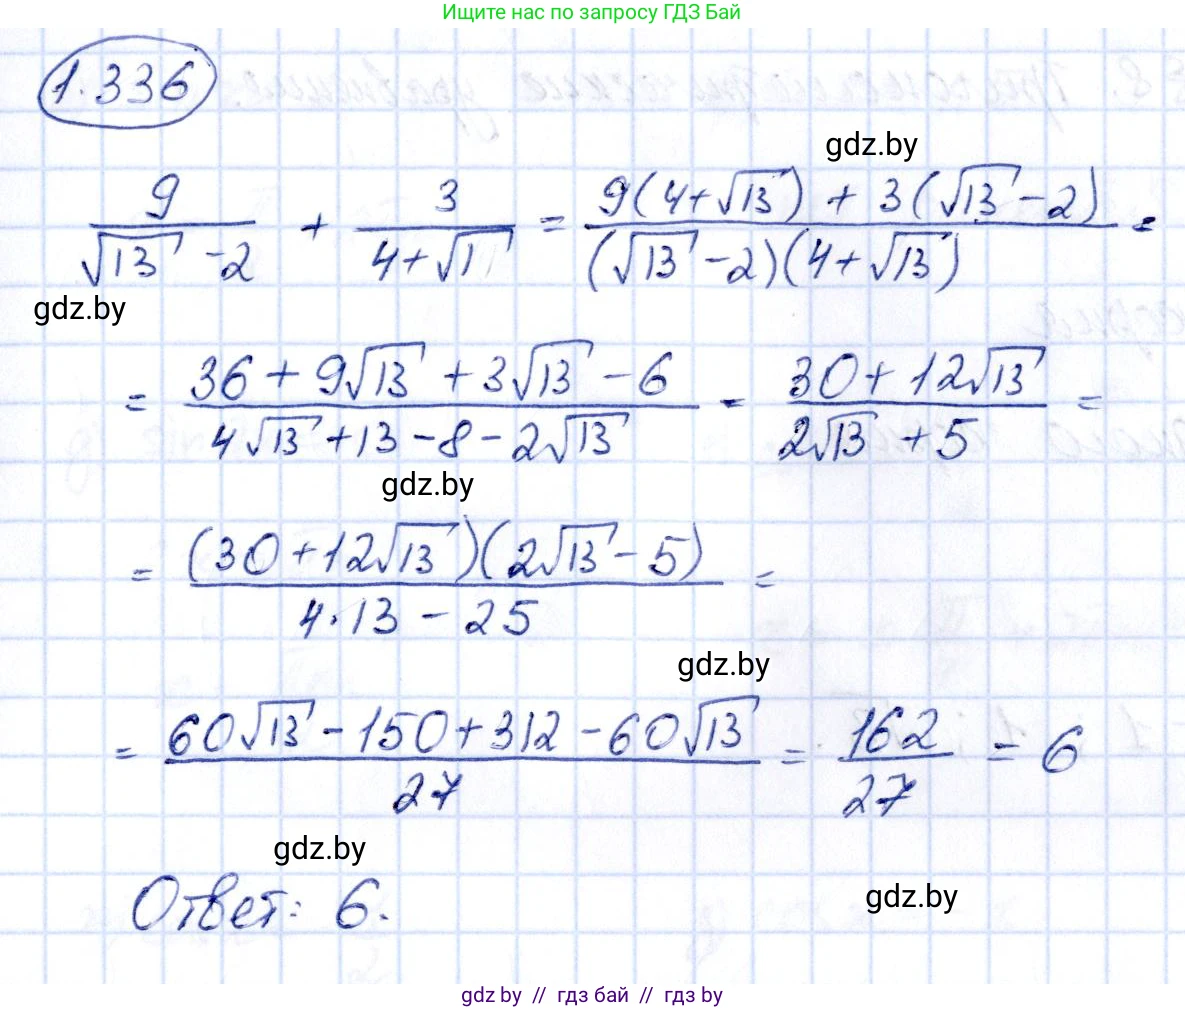 Ищите нас по запросу ГДЗ Бай
1.336
gdz.by
9/(√13 -2) + 3/(4+√1) = (9(4+√13) + 3(√13 -2))/((√13 -2)(4+√13)) =
gdz.by
= (36 + 9√13 + 3√13 - 6)/(4√13 + 13 - 8 - 2√13) = (30 + 12√13)/(2√13 + 5) =
gdz.by
= ((30 + 12√13)(2√13 - 5))/(4·13 - 25) =
gdz.by
= (60√13 - 150 + 312 - 60√13)/27 = 162/27 = 6
gdz.by
Ответ: 6.
gdz.by
gdz by // гдз бай // гдз by